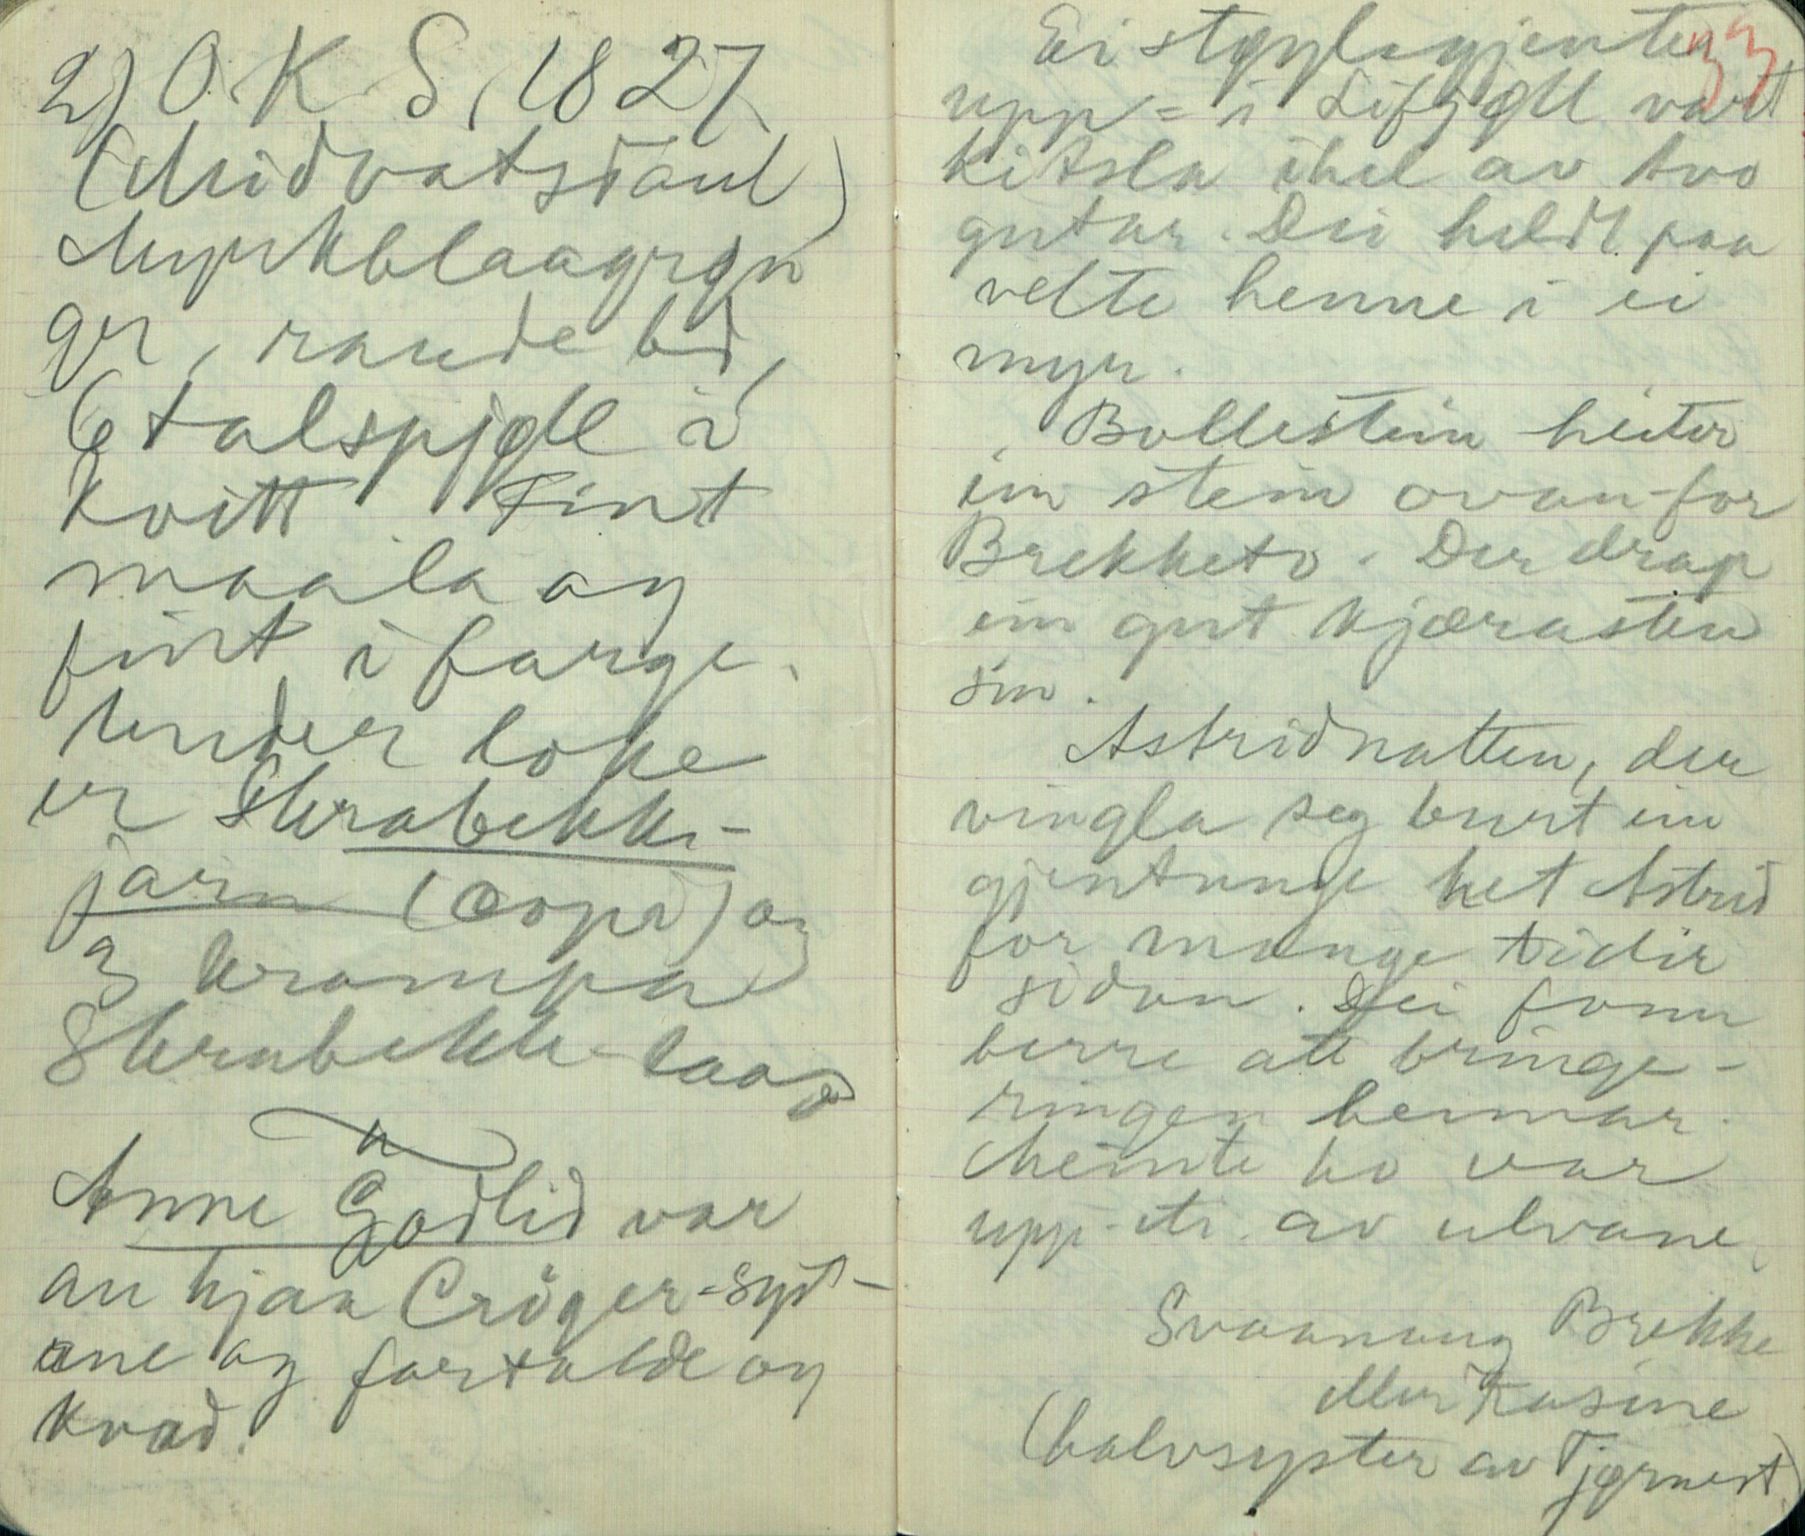 2) O. K. S. 1827
(Midvatsdaul)
Myrkblaagrøn
ger, raude bd,
6 talspjøll i
kvitt Fint
maala og
fint i farge.
Under loke
er Skrabekke-
jarn (oope) og
3 krampa
Skrabekk-laas
Anne Godlid var
au hjaa Crøger-syst-
ane og fortalde og
kvad.
33
Ei støylsgjente
upp-i Lifjøll vart
kitsla ihel av tvo
gutar. Dei heldt paa
velte henne i ei
myr.
Bollestein heiter
ein stein ovan-for
Brekketo. Der drap
ein gut kjærasten
sin.
Astridnatten, der
vingla seg burt ein
gjentunge het Astrid
for mange tidir
sidan. Dei fonn
berre att bringe-
ringen hennar.
Meinte ho var
upp-eti av ulvane.
Svaanaug Brekke
eller Rasine
(halvsyster av Tjønnest)